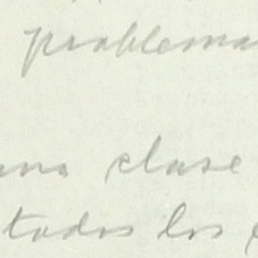 problema
una clase
todos los